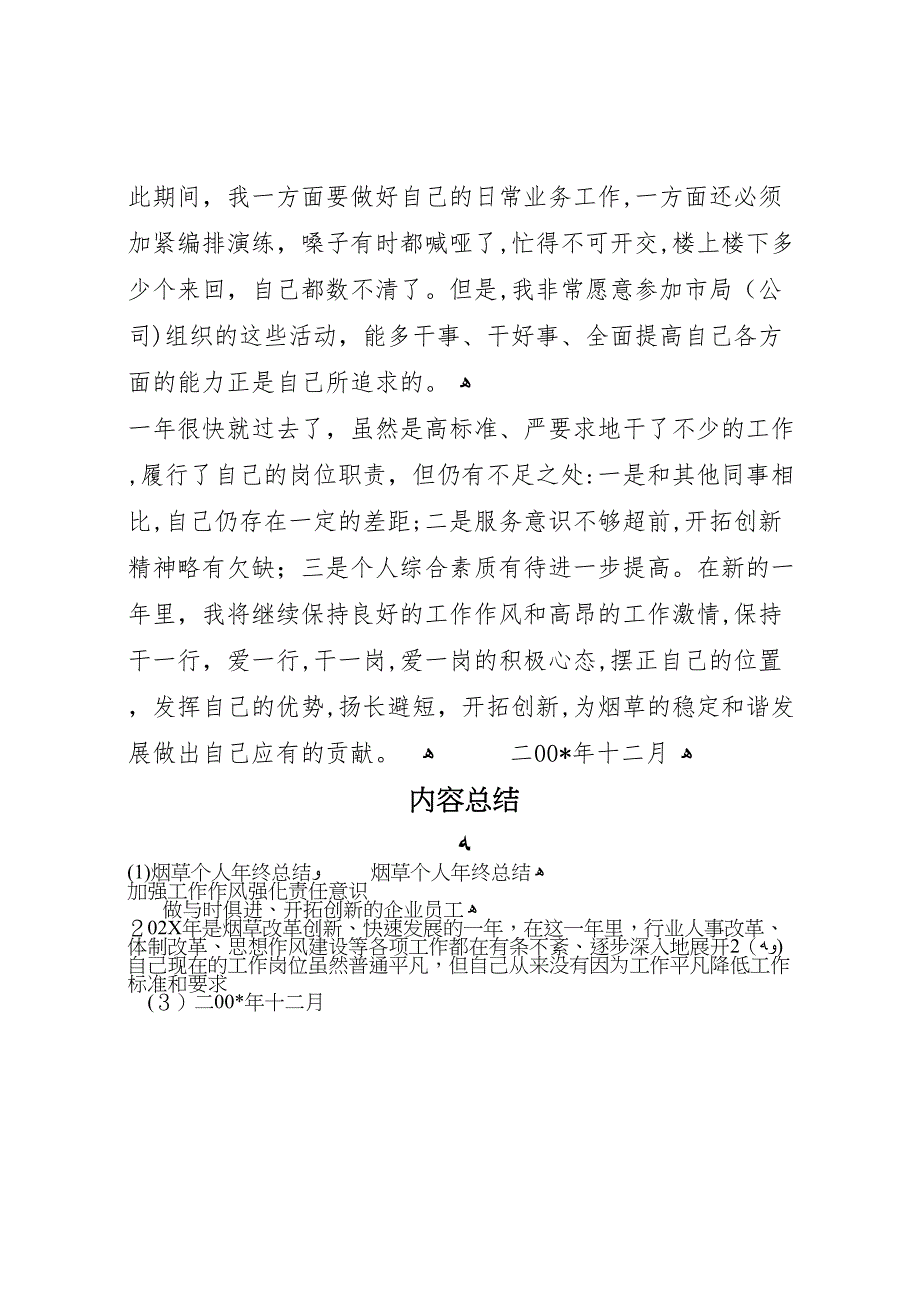 此期间，我一方面要做好自己的日常业务工作,一方面还必须
加紧编排演练，嗓子有时都喊哑了,忙得不可开交,楼上楼下多
少个来回，自己都数不清了。但是,我非常愿意参加市局（公
司)组织的这些活动，能多干事、干好事、全面提高自己各方
面的能力正是自己所追求的。 ﻫ
一年很快就过去了，虽然是高标准、严要求地干了不少的工作
,履行了自己的岗位职责，但仍有不足之处:一是和其他同事相
比,自己仍存在一定的差距;二是服务意识不够超前,开拓创新
精神略有欠缺；三是个人综合素质有待进一步提高。在新的一
年里，我将继续保持良好的工作作风和高昂的工作激情,保持
干一行，爱一行,干一岗,爱一岗的积极心态,摆正自己的位置
，发挥自己的优势,扬长避短，开拓创新,为烟草的稳定和谐发
展做出自己应有的贡献。 ﻫ 二00*年十二月 ﻫ
内容总结
ﻪ
(1)烟草个人年终总结ﻭ 烟草个人年终总结ﻫ
加强工作作风强化责任意识
做与时俱进、开拓创新的企业员工ﻫ
２02X年是烟草改革创新、快速发展的一年，在这一年里，行业人事改革、
体制改革、思想作风建设等各项工作都在有条不紊、逐步深入地展开2（ﻭﻪ)
自己现在的工作岗位虽然普通平凡，但自己从来没有因为工作平凡降低工作
标准和要求
(３）二00*年十二月